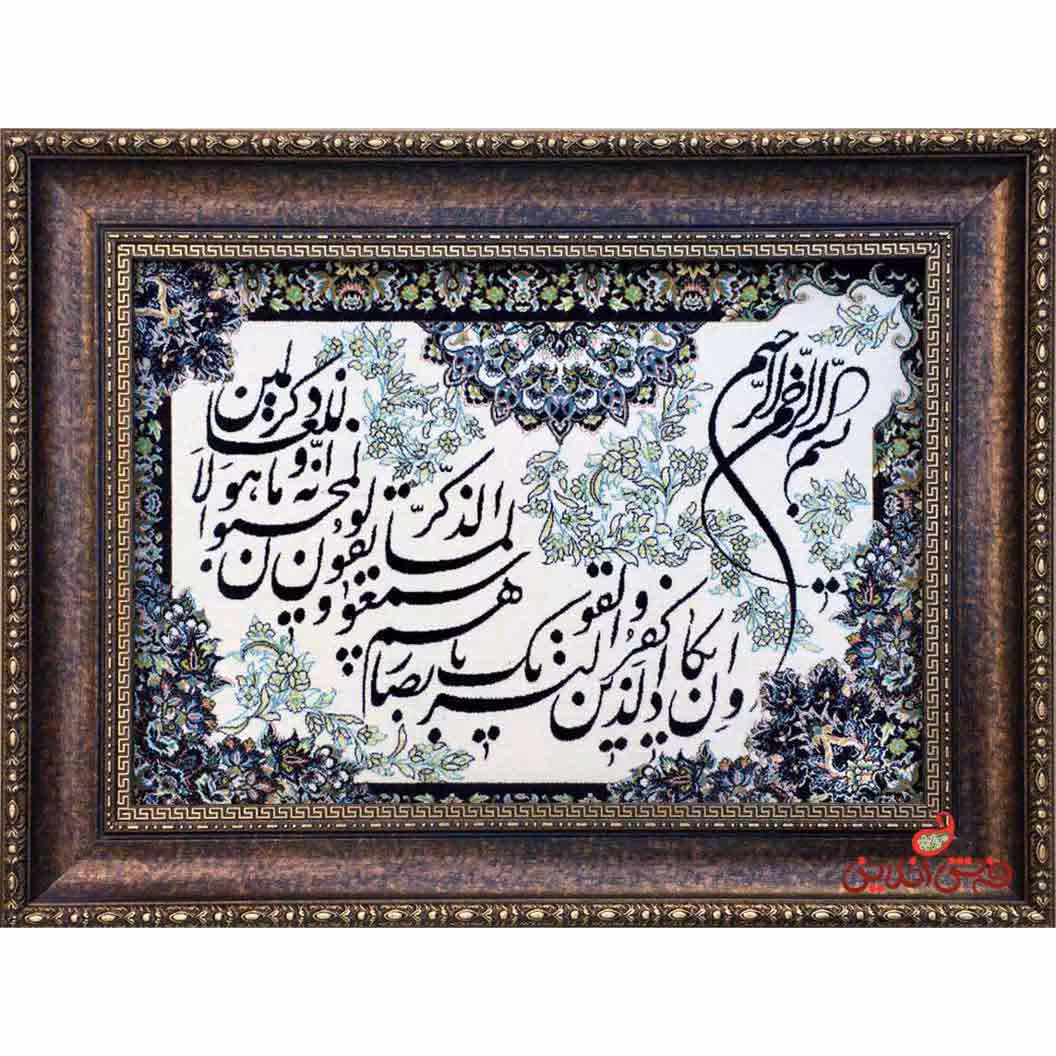 بسم الله الرحمن الرحیم
وان یکاد الذین کفروا لیزلقونک بابصارهم
لما سمعوا الذکر و یقولون
انه لمجنون و ما هو الا ذکر للعالمین
فرش آنلاین